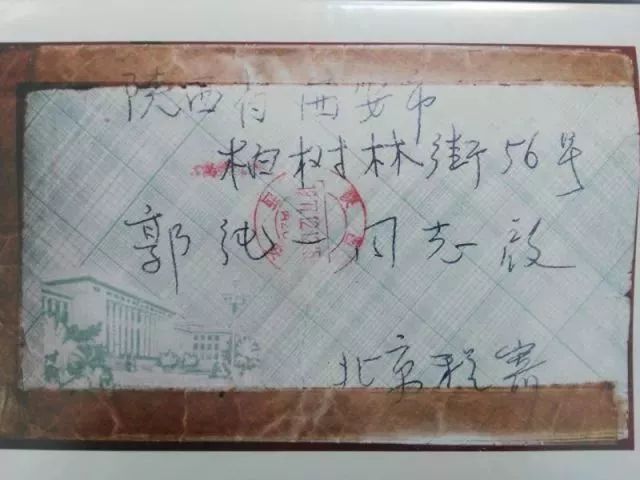 陕西省西安市
柏树林街56号
郭纯一同志启
北京程寄